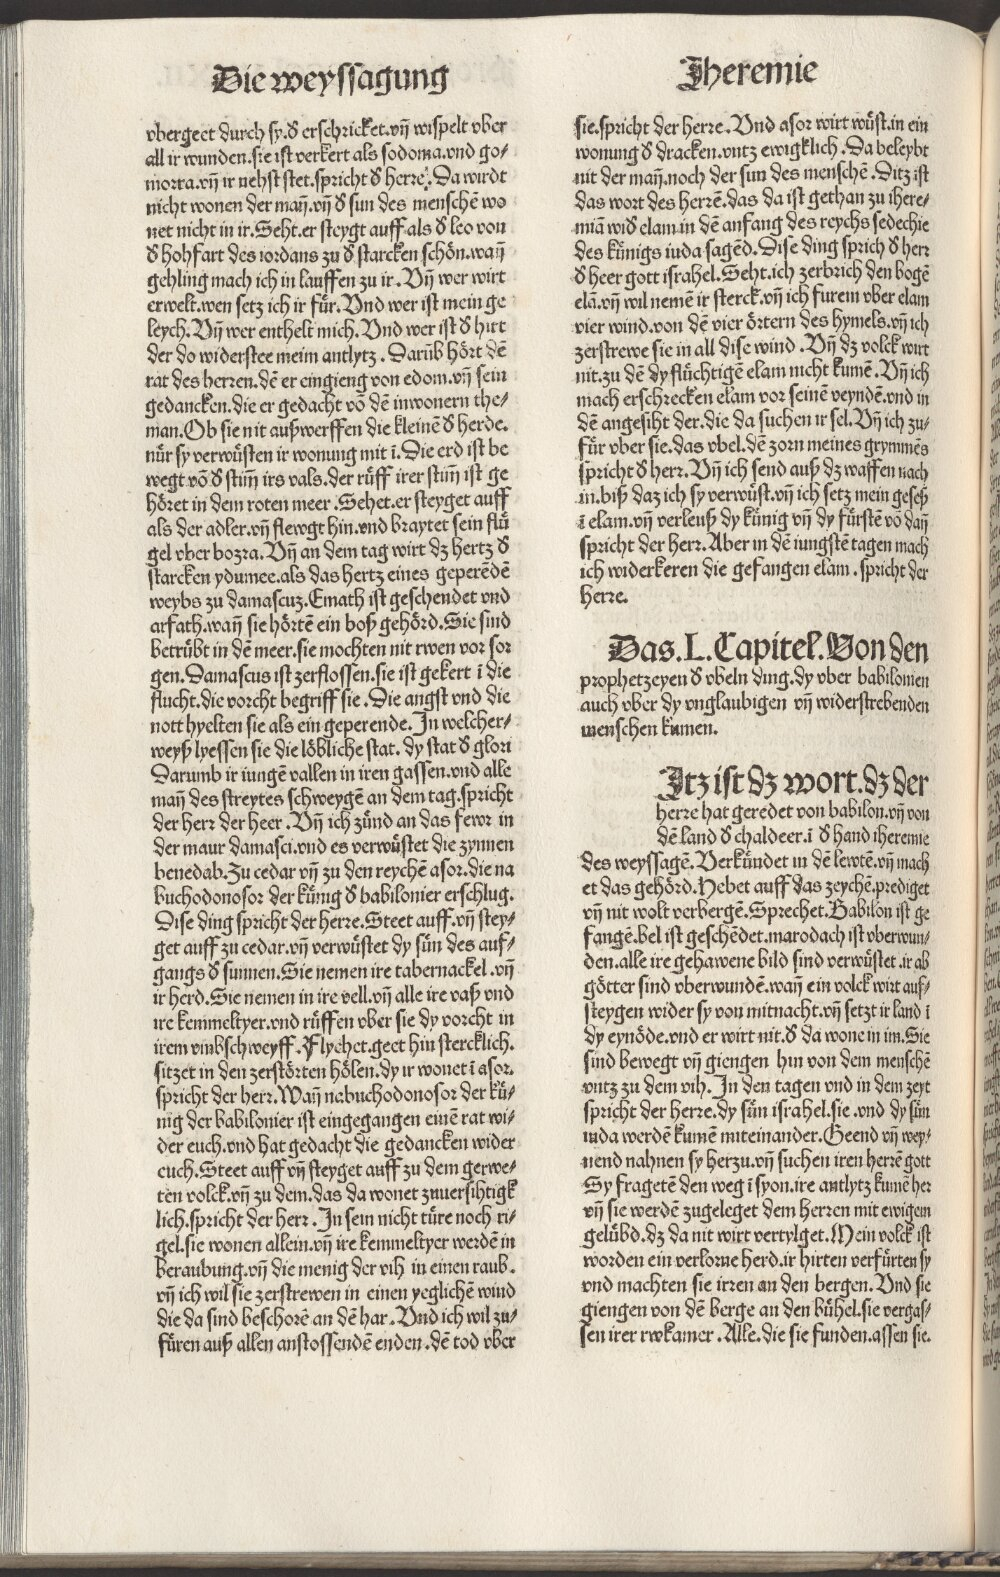 Die weyssagung
vbergeet durch sy.d̕ erschricket.vn̄ wispelt vber
all ir wunden.sie ist verkert als sodoma.vnd go⸗
morra.vn̄ ir nehst stet.spricht d̕ herre. Da wirdt
nicht wonen der man̄.vn̄ d̕ sun des menschē wo
net nicht in ir.Seht.er steygt auff als d̕ leo von
d̕ hohfart des iordans zu d̕ starcken schön.wan̄
gehling mach ich in lauffen zu ir. Vn̄ wer wirt
erwelt.wen setz ich ir für. Vnd wer ist mein ge
leych. Vn̄ wer enthelt mich. Vnd wer ist d̕ hirt
der do widerstee meim antlytz. Darūb hört dē
rat des herren.dē er eingieng von edom.vn̄ sein
gedancken.die er gedacht vō dē inwonern the⸗
man.Ob sie nit außwerffen die kleinē d̕ herde.
nür sy verwüsten ir wonung mit ī. Die erd ist be
wegt vō d̕ stim̄ irs vals.der rüff irer stim̄ ist ge
höret in dem roten meer. Sehet.er steyget auff
als der adler.vn̄ flewgt hin.vnd braytet sein flü
gel vber bozra. Vn̄ an dem tag wirt dz hertz d̕
starcken ydumee.als das hertz eines geperēdē
weybs zu damascuz.Emath ist geschendet vnd
arfath.wan̄ sie hörtē ein boß gehörd. Sie sind
betrübt in dē meer.sie mochten nit rwen vor sor
gen. Damascus ist zerflossen.sie ist gekert ī die
flucht.die vorcht begriff sie. Die angst vnd die
nott hyelten sie als ein geperende. In welcher⸗
weyß lyessen sie die löbliche stat. dy stat d̕ glori
Darumb ir iungē vallen in iren gassen.vnd alle
man̄ des streytes schweygē an dem tag.spricht
der herr der heer. Vn̄ ich zünd an das fewr in
der maur damasci.vnd es verwüstet die zynnen
benedab.Zu cedar vn̄ zu den reychē asor.die na
buchodonosor der künig d̕ babilonier erschlug.
Dise ding spricht der herre. Steet auff.vn̄ stey⸗
get auff zu cedar.vn̄ verwüstet dy sün des auf⸗
gangs d̕ sunnen. Sie nemen ire tabernackel.vn̄
ir herd. Sie nemen in ire vell.vn̄ alle ire vaß vnd
ire kemmeltyer.vnd rüffen vber sie dy vorcht in
irem vmbschweyff. Flyehet.geet hin stercklich.
sitzet in den zerstörten hölen.dy ir wonet ī asor.
spricht der herr. Wan̄ nabuchodonosor der kü⸗
nig der babilonier ist eingegangen einē rat wi⸗
der euch.vnd hat gedacht die gedancken wider
euch. Steet auff vn̄ steyget auff zu dem gerwe⸗
ten volck.vn̄ zu dem.das da wonet zuuersihtigk
lich.spricht der herr. In sein nicht türe noch ri⸗
gel.sie wonen allein.vn̄ ire kemmeltyer werdē in
beraubung.vn̄ die menig der vih in einen raub.
vn̄ ich wil sie zerstrewen in einen yeglichē wind
die da sind beschorē an dē har. Vnd ich wil zu⸗
füren auß allen anstossendē enden.dē tod vber
Jheremie
sie.spricht der herre. Vnd asor wirt wüst.in ein
wonung d̕ dracken.vntz ewigklich. Da beleybt
nit der man̄.noch der sun des menschē. Ditz ist
das wort des herrē.das da ist gethan zu ihere⸗
miā wid̕ elam.in dē anfang des reychs sedechie
des künigs iuda sagēd. Dise ding sprich d̕ herr
d̕ heer gott israhel.Seht.ich zerbrich den bogē
elā.vn̄ wil nemē ir sterck.vn̄ ich furem vber elam
vier wind.von dē vier örtern des hymels.vn̄ ich
zerstrewe sie in all dise wind. Vn̄ dz volck wirt
nit.zu dē dy flüchtigē elam nicht kumē. Vn̄ ich
mach erschrecken elam vor seinē veyndē.vnd in
dē angesiht der.die da suchen ir sel. Vn̄ ich zu⸗
für vber sie.das vbel.dē zorn meines grymmēs
spricht d̕ herr. Vn̄ ich send auß dz waffen nach
in.biß daz ich sy verwüst.vn̄ ich setz mein geseß
ī elam.vn̄ verleuß dy künig vn̄ dy fürstē vō dan̄
spricht der herr. Aber in dē iungstē tagen mach
ich widerkeren die gefangen elam. spricht der
herre.
Das.L.Capitel.Von den
prophetzeyen d̕ vbeln ding.dy vber babilonien
auch vber dy vnglaubigen vn̄ widerstrebenden
menschen kumen.
Itz ist dz wort.dz der
herre hat geredet von babilon.vn̄ von
dē land d̕ chaldeer.ī d̕ hand iheremie
des weyssagē. Verkündet in dē lewtē.vn̄ mach
et das gehörd. Hebet auff das zeychē.prediget
vn̄ nit wolt verbergē. Sprechet.Babilon ist ge
fangē.bel ist geschēdet.marodach ist vberwun⸗
den.alle ire gehawene bild sind verwüstet.ir ab
götter sind vberwundē.wan̄ ein volck wirt auf⸗
steygen wider sy von mitnacht.vn̄ setzt ir land ī
dy eynöde.vnd er wirt nit.d̕ da wone in im. Sie
sind bewegt vn̄ giengen hin von dem menschē
vntz zu dem vih. In den tagen vnd in dem zeyt
spricht der herre.dy sün israhel.sie.vnd dy sün
iuda werdē kumē miteinander.Geend vn̄ wey⸗
nend nahnen sy herzu.vn̄ suchen iren herrē gott
Sy fragetē den weg ī syon.ire antlytz kumē her
vn̄ sie werdē zugeleget dem herren mit ewigem
gelübd.dz da nit wirt vertylget. Mein volck ist
worden ein verlorne herd.ir hirten verfürten sy
vnd machten sie irren an den bergen. Vnd sie
giengen von dē berge an den bühel.sie vergas⸗
sen irer rwkamer. Alle.die sie funden.assen sie.